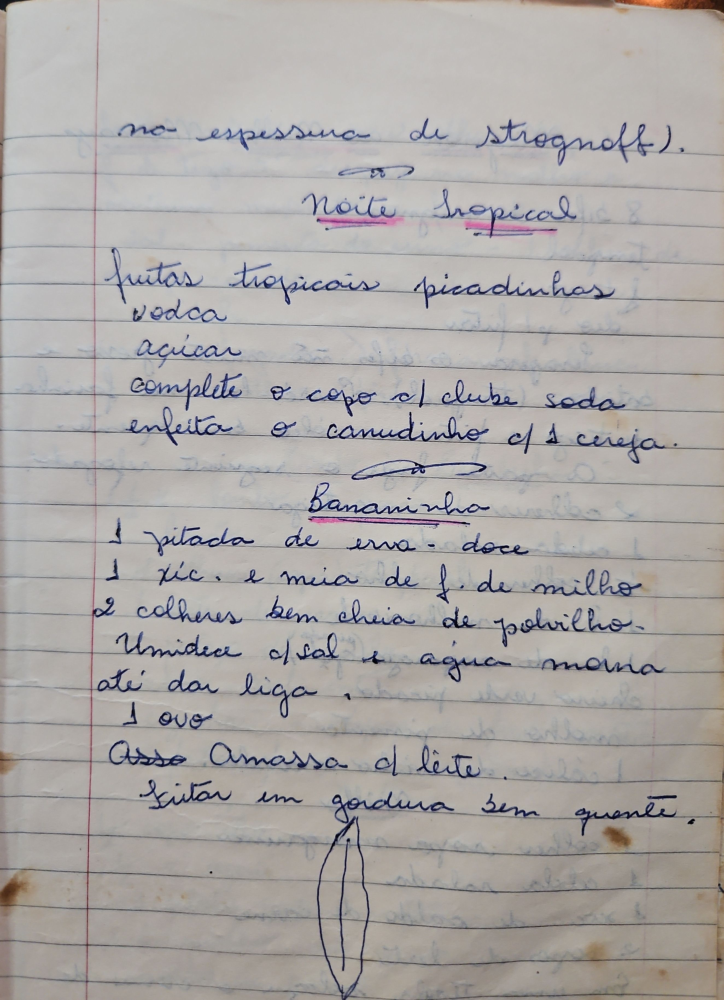 na espessura de strognoff).
Noite Tropical
frutas tropicais picadinhas
vodca
açúcar
complete o copo c/ clube soda
enfeita o canudinho c/ 1 cereja.
Bananinha
1 pitada de erva-doce
1 xíc. e meia de f. de milho
2 colheres bem cheia de polvilho.
Umidece c/ sal e água morna
até dar liga.
1 ovo
Amassa c/ leite.
Fritar em gordura bem quente.